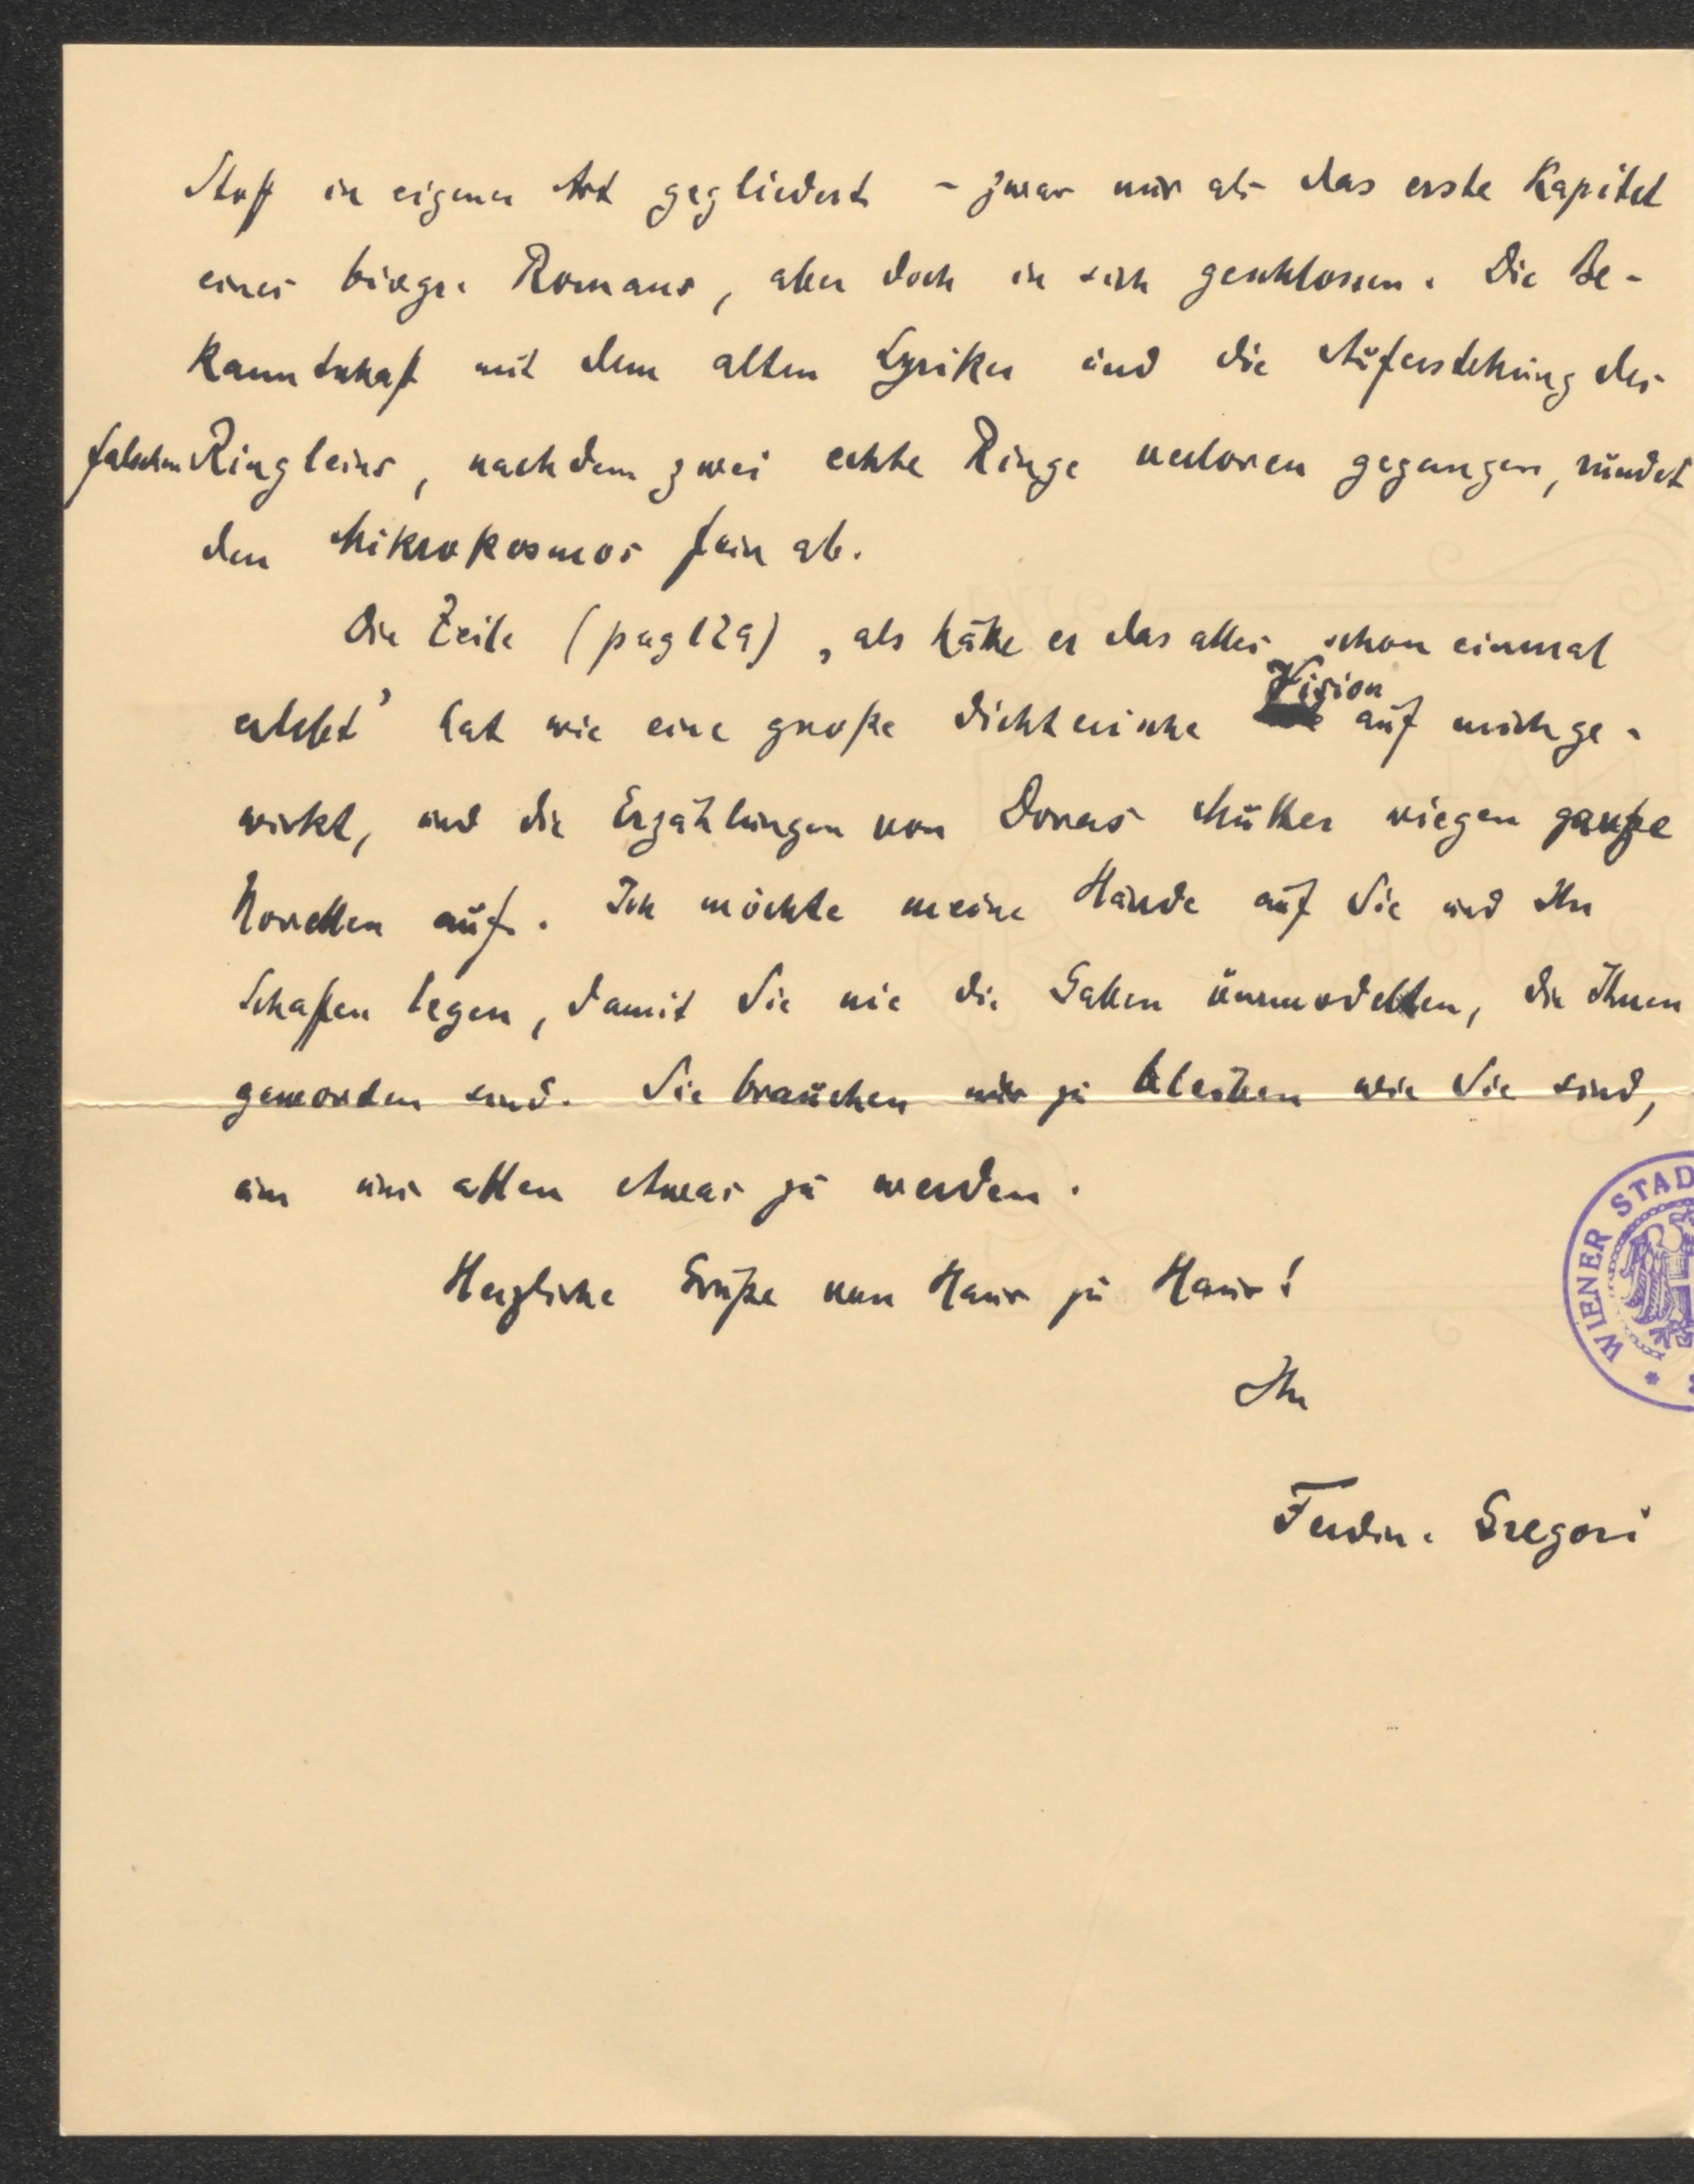 Stoff in eigener Art gegliedert – zwar nur als das erste Kapitel
eines biogr. Romans, aber doch in sich geschlossen. Die Be-
kanntschaft mit dem alten Lyriker und die Auferstehung des
falschen Ringleins, nachdem zwei echte Ringe verloren gegangen, rundet
den Mikrokosmos fein ab.
Die Zeile (pag 129) ‚als hätte er das alles schon einmal
erlebt’ hat wie eine große dichterische Vision auf mich ge-
wirkt, und die Erzählungen von Doras Mutter wiegen ganze
Novellen auf. Ich möchte meine Hände auf Sie und Ihr
Schaffen legen, damit Sie nie die Gaben ummodelten, die Ihnen
geworden sind. Sie brauchen nur zu bleiben wie Sie sind,
um uns allen etwas zu werden.
Herzliche Grüße von Haus zu Haus!
Ihr
Ferdin. Gregori
WIENER STAD